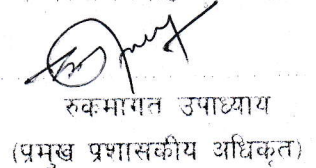 रुकमागत उपाध्याय
(प्रमुख प्रशासकीय अधिकृत)